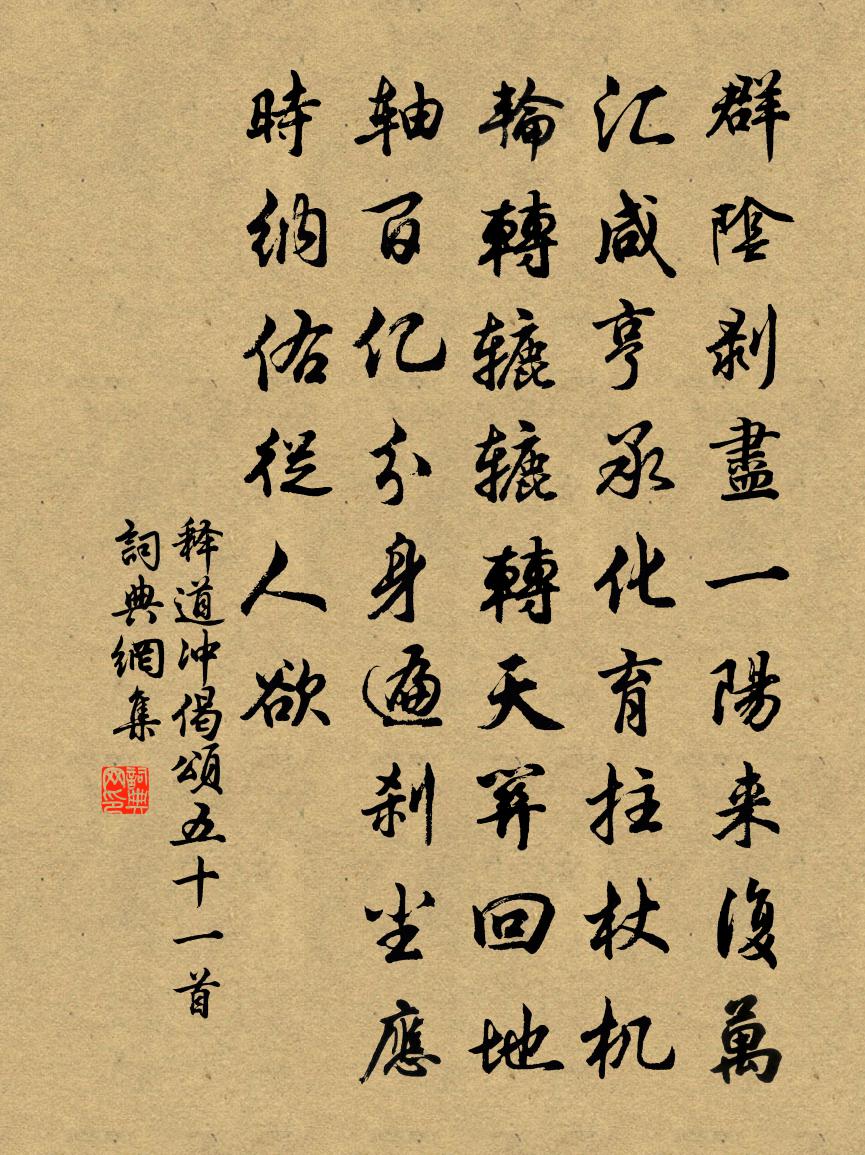 群陰剥盡一陽来復萬
汇咸亨承化育拄杖机
輪轉辘辘轉天关回地
軸百亿分身遍刹尘應
時納佑從人欲
释道冲偈頌五十一首
詞典網集
詞典网印